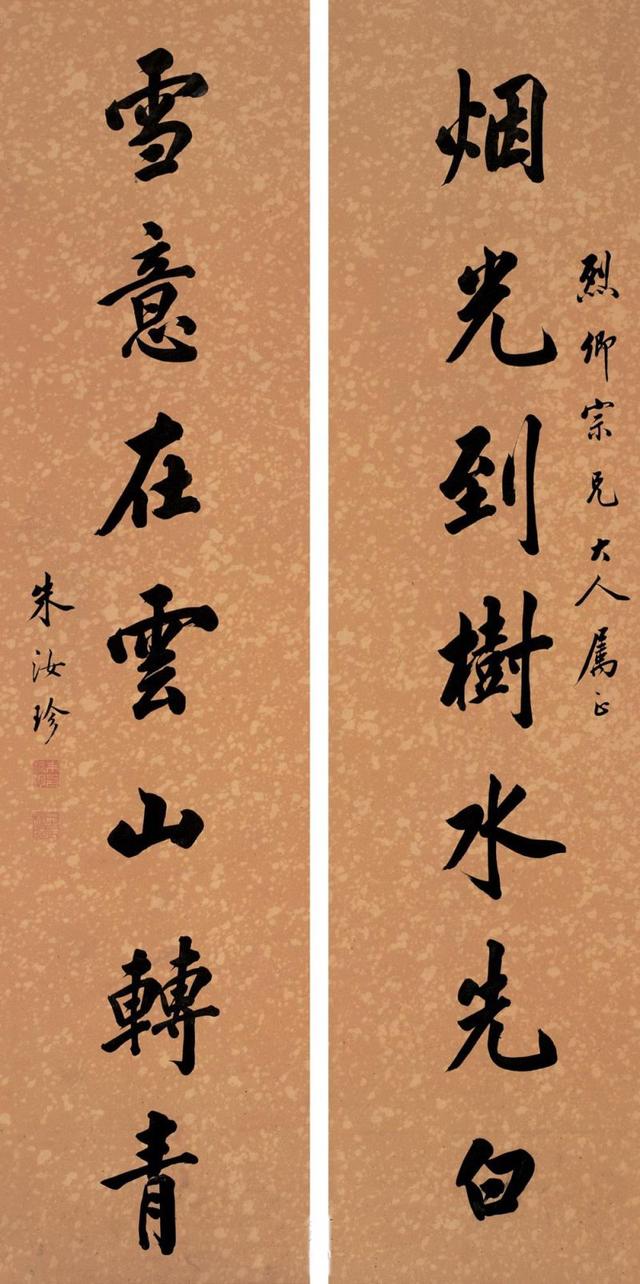 烈卿宗兄大人属正
烟光到樹水先白
雪意在雲山轉青
朱汝珍